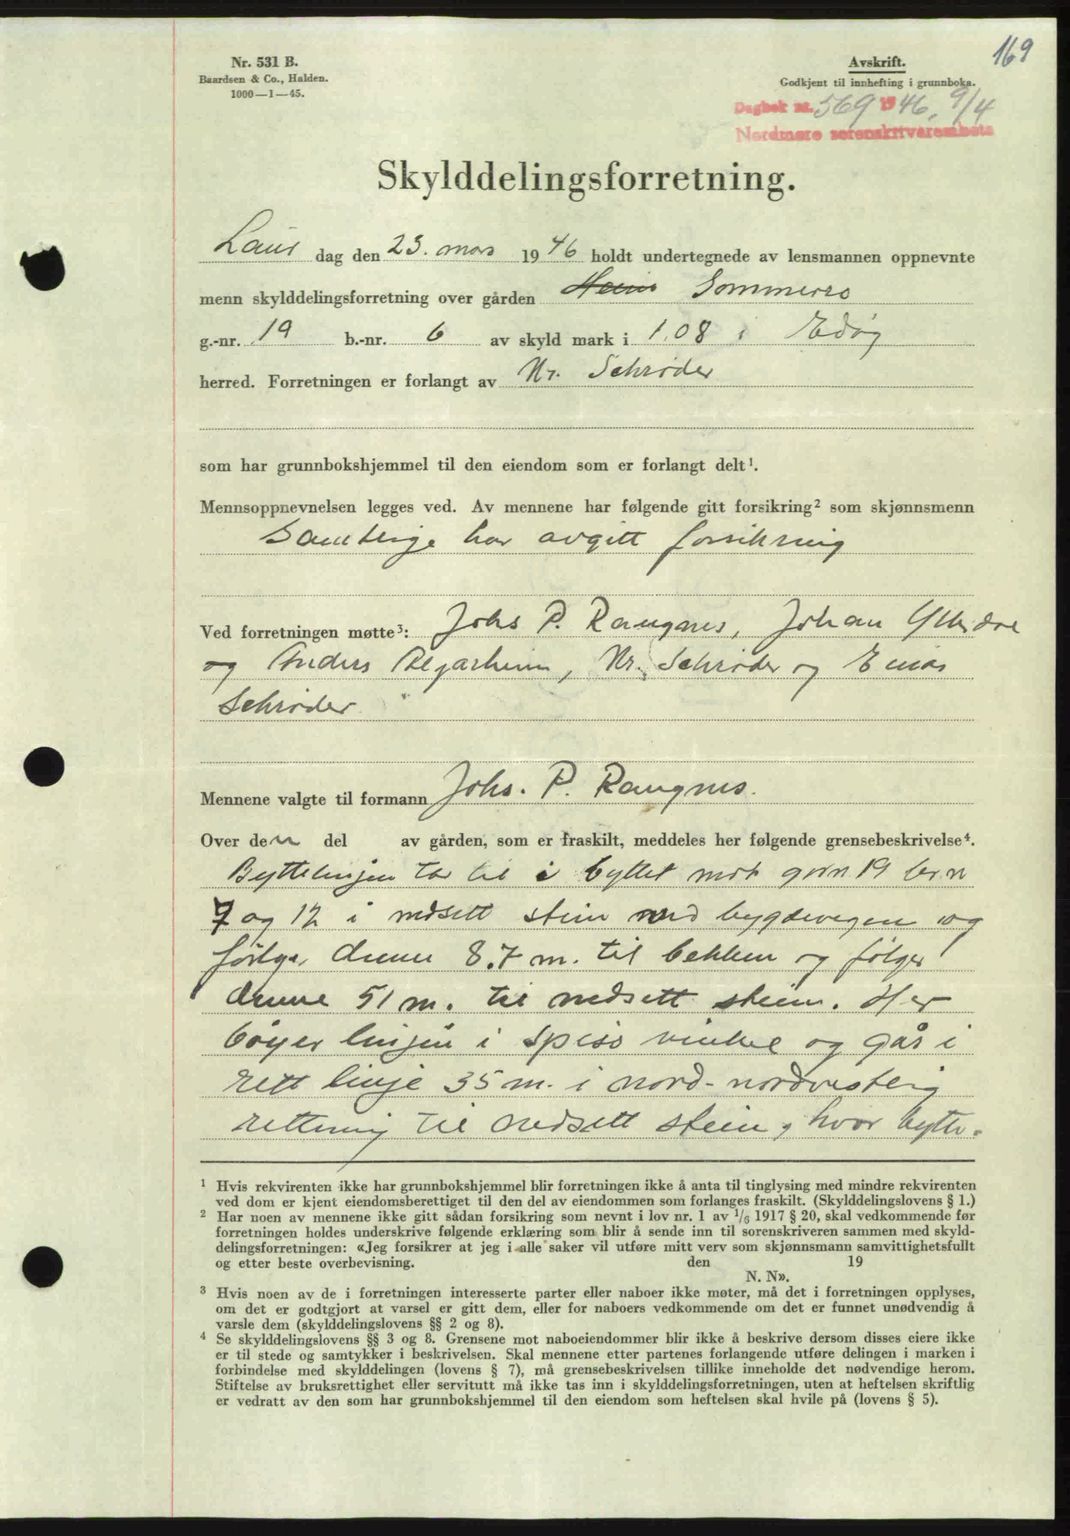 169
Nr. 531 B.
Baardsen & Co., Halden.
1000—1—45.
Avskrift.
Godkjent til innhefting i grunnboka.
Dagbok nr. 569 1946, 9/4
Nordmøre sorenskriverembete
Skylddelingsforretning.
Laur dag den 23. mars 1946 holdt undertegnede av lensmannen oppnevnte
menn skylddelingsforretning over gården Sommerro
g.-nr. 19 b.-nr. 6 av skyld mark i 1.08 i Edøy
herred. Forretningen er forlangt av Nr. Schrøder
som har grunnbokshjemmel til den eiendom som er forlangt delt¹.
Mennsoppnevnelsen legges ved. Av mennene har følgende gitt forsikring² som skjønnsmenn
Samtlige har avgitt forsikring
Ved forretningen møtte³: Johs P. Raugnes, Johan
og Anders Algarheim, Nr. Schrøder og Einar
Schrøder
Mennene valgte til formann Johs. P. Raugnes.
Over den del av gården, som er fraskilt, meddeles her følgende grensebeskrivelse⁴.
Byttelinjen tar til i byttet mot g.nr. 19 br.nr
7 og 12 i nedsett stein ved bygdevegen og
følger denne 8.7 m. til bekken og følger
denne 51 m. til nedsett stein. Her
bøyer linjen i spiss vinkel og går i
rett linje 35 m. i nord-nordvestlig
retning til nedsett stein, hvor bytte-
¹ Hvis rekvirenten ikke har grunnbokshjemmel blir forretningen ikke å anta til tinglysing med mindre rekvirenten
ved dom er kjent eiendomsberettiget til den del av eiendommen som forlanges fraskilt. (Skylddelingslovens § 1.)
² Har noen av mennene ikke gitt sådan forsikring som nevnt i lov nr. 1 av 1/6 1917 § 20, skal vedkommende før
forretningen holdes underskrive følgende erklæring som blir å sende inn til sorenskriveren sammen med skyld-
delingsforretningen: «Jeg forsikrer at jeg i alle saker vil utføre mitt verv som skjønnsmann samvittighetsfullt
og etter beste overbevisning. den 19
N. N».
³ Hvis noen av de i forretningen interesserte parter eller naboer ikke møter, må det i forretningen opplyses,
om det er godtgjort at varsel er gitt dem, eller for naboers vedkommende om det er funnet unødvendig å
varsle dem (skylddelingslovens §§ 2 og 8).
⁴ Se skylddelingslovens §§ 3 og 8. Grensene mot naboeiendommer blir ikke å beskrive dersom disses eiere ikke
er til stede og samtykker i beskrivelsen. Skal mennene etter partenes forlangende utføre delingen i marken i
forbindelse med skylddelingen (lovens § 7), må grensebeskrivelsen tillike inneholde det nødvendige herom.
Stiftelse av bruksrettighet eller servitutt må ikke tas inn i skylddelingsforretningen, uten at heftelsen skriftlig
er vedratt av den som har grunnbokshjemmel til den eiendom som heftelsen skal hvile på (lovens § 5).